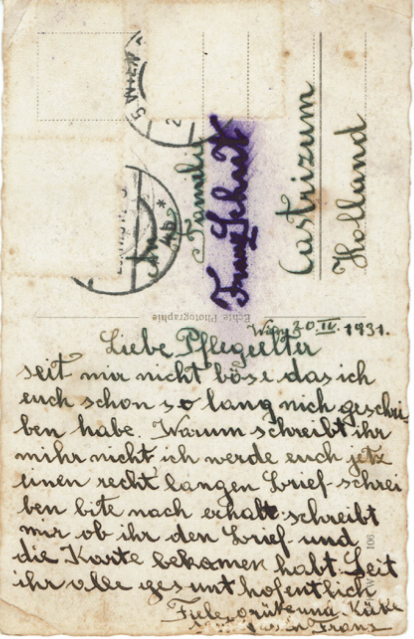 An
Familie
Franz Schreit
Castrizum
Holland
Echte Photographie
Wien 20 IV. 1931.
Liebe Pflegeelter
seit mir nicht böse das ich
euch schon so lang nich geschrie-
ben habe. Warum schreibt ihr
mihr nicht, ich werde euch jetz
einen recht langen Brief schrei
ben bite nach erhalt schreibt
mir ob ihr den Brief und
die Karte bekomen habt. Seit
ihr alle gesunt hofentlich
Fiele grüße und Küße
Franz
106